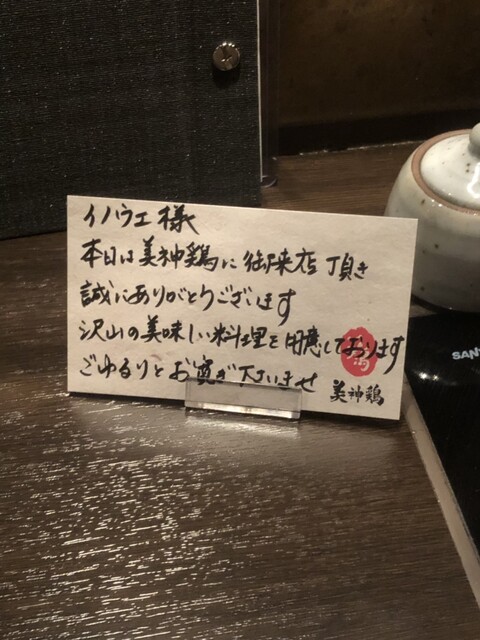 イノウエ様
本日は美神鶏に御来店頂き
誠にありがとうございます
沢山の美味しい料理を用意しております
ごゆるりとお寛ぎ下いませ
美神鶏
SAN